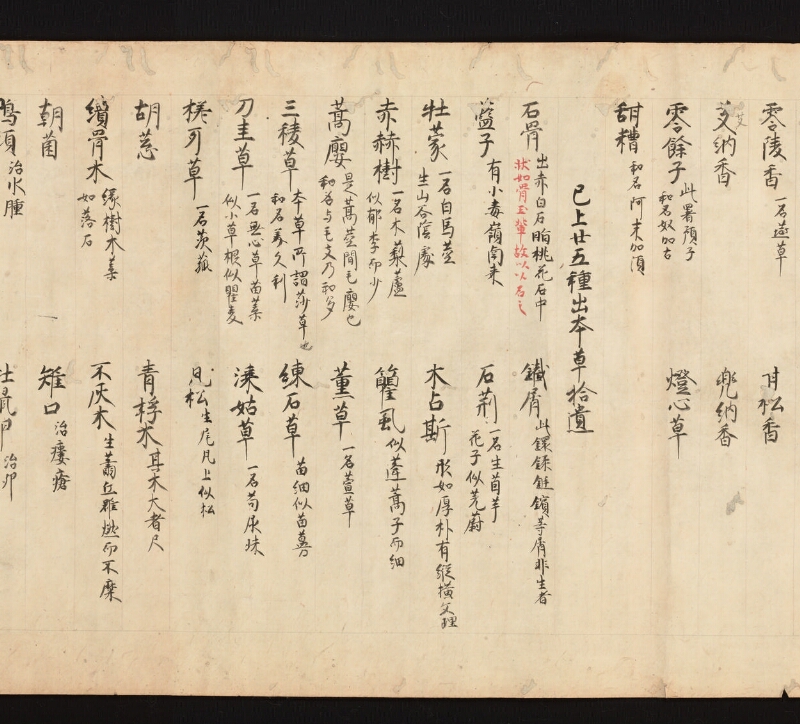 零陵香 一名燕草 甘松香
艾納香 兜納香
零餘子 此署預子 和名奴加古 燈心草
甜糟 和名阿末加須
已上廿五種出本草拾遺
石骨 出赤白石脂桃花石中 狀如骨 鐵屑 此鐶鏁鋌鑕等屑非生者
藍子 有小毒嶺南来 石荊 一名生苜芋 花子似茺蔚
牡蒙 一名白馬莖 生山谷蔭處 木占斯 形如厚朴有縱橫文理
赤赫樹 一名木藜蘆 似郁李而少 籰虱 似蓬蒿子而細
蒿麞 是蒿莖間毛麞也 薰草 一名萱草
三稜草 本草所謂莎草也 和名美久利 練石草 苗細似苗
刀圭草 一名無心草苗葉 似小草根似瞿麦 溱姑草 一名苟尿
草 一名茨菰 瓦松 生尾瓦上似松
胡葱 青桴木 其木大者尺
續骨木 緣樹木葉 如落石 不灰木 生蕭丘雖燃而不糜
朝菌 雉口 治瘻瘡
鳴頭 治水腫 牡鼠卵 治卵